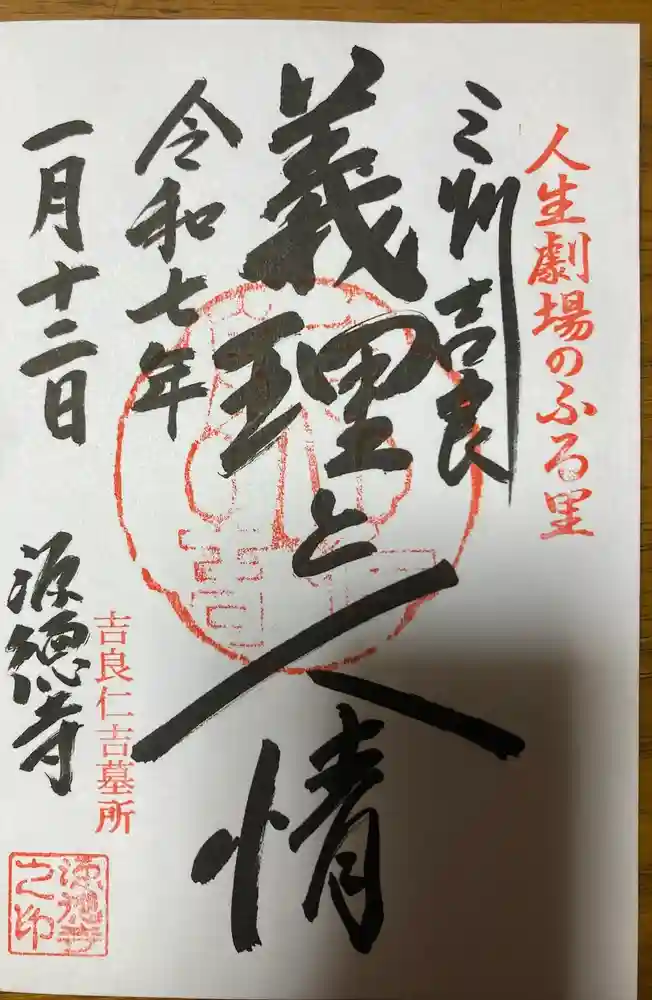 人生劇場のふる里
三州吉良
義理と人情
令和七年
一月十二日
吉良仁吉墓所
源徳寺
源徳寺
之印